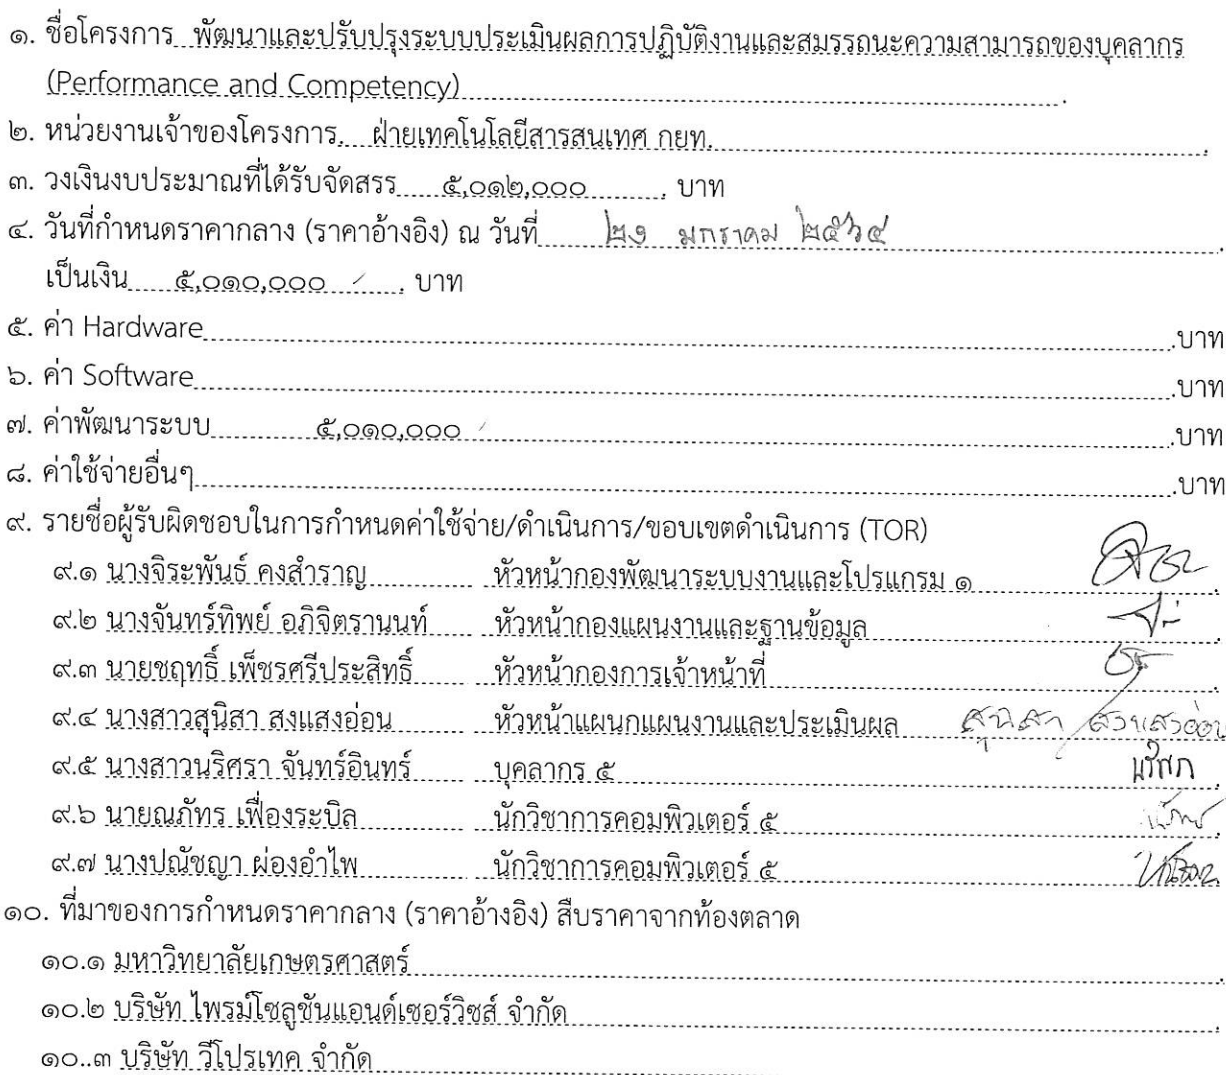 ๑. ชื่อโครงการ พัฒนาและปรับปรุงระบบประเมินผลการปฏิบัติงานและสมรรถนะความสามารถของบุคลากร
(Performance and Competency)
๒. หน่วยงานเจ้าของโครงการ ฝ่ายเทคโนโลยีสารสนเทศ กยท.
๓. วงเงินงบประมาณที่ได้รับจัดสรร ๕,๐๑๒,๐๐๐ บาท
๔. วันที่กำหนดราคากลาง (ราคาอ้างอิง) ณ วันที่ มกราคม ๒๕๖๔
เป็นเงิน ๕,๐๑๐,๐๐๐ บาท
๕. ค่า Hardware บาท
๖. ค่า Software บาท
๗. ค่าพัฒนาระบบ ๕,๐๑๐,๐๐๐ บาท
๘. ค่าใช้จ่ายอื่นๆ บาท
๙. รายชื่อผู้รับผิดชอบในการกำหนดค่าใช้จ่าย/ดำเนินการ/ขอบเขตดำเนินการ (TOR)
๙.๑ นางจิระพันธ์ คงสำราญ หัวหน้ากองพัฒนาระบบงานและโปรแกรม ๑
๙.๒ นางจันทร์ทิพย์ อภิจิตรานนท์ หัวหน้ากองแผนงานและฐานข้อมูล
๙.๓ นายชฤทธิ์ เพ็ชรศรีประสิทธิ์ หัวหน้ากองการเจ้าหน้าที่
๙.๔ นางสาวสุนิสา สงแสงอ่อน หัวหน้าแผนกแผนงานและประเมินผล สุนิสา สงแสงอ่อน
๙.๕ นางสาวนริศรา จันทร์อินทร์ บุคลากร ๕
๙.๖ นายณภัทร เฟื่องระบิล นักวิชาการคอมพิวเตอร์ ๕
๙.๗ นางปณัชญา ผ่องอำไพ นักวิชาการคอมพิวเตอร์ ๕
๑๐. ที่มาของการกำหนดราคากลาง (ราคาอ้างอิง) สืบราคาจากท้องตลาด
๑๐.๑ มหาวิทยาลัยเกษตรศาสตร์
๑๐.๒ บริษัท ไพรม์โซลูชันแอนด์เซอร์วิซส์ จำกัด
๑๐..๓ บริษัท วีโปรเทค จำกัด